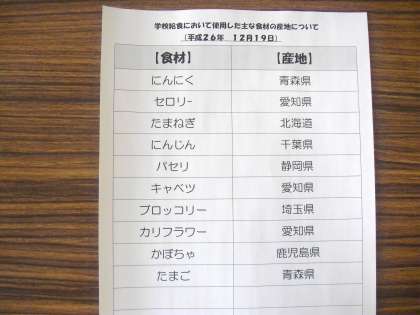 学校給食において使用した主な食材の産地について
(平成26年 12月19日)
【食材】 【産地】
にんにく 青森県
セロリー 愛知県
たまねぎ 北海道
にんじん 千葉県
パセリ 静岡県
キャベツ 愛知県
ブロッコリー 埼玉県
カリフラワー 愛知県
かぼちゃ 鹿児島県
たまご 青森県